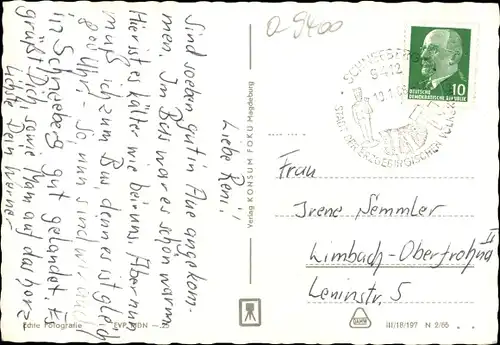 Liebe Reni!
Sind soeben gut in Aue angekom-
men. Im Bus war es schön warm
Hier ist es kälter wie bei uns. Aber nun
muß ich zum Bus, denn es ist gleich
Uhr. So, nun sind wir auch
in Schneeberg gut gelandet. Es
grüßt Dich sowie Mam auf das herz-
lichste Dein Werner
Verlag KONSUM FOKU Magdeburg
Echte Fotografie EVP MDN —.25
O 9400
SCHNEEBERG
9412
STADT DER ERZGEBIRGISCHEN
10
DEUTSCHE
DEMOKRATISCHE REPUBLIK
Frau
Irene Semmler
Limbach-Oberfrohna II
Leninstr. 5
III/18/197 N 2/65